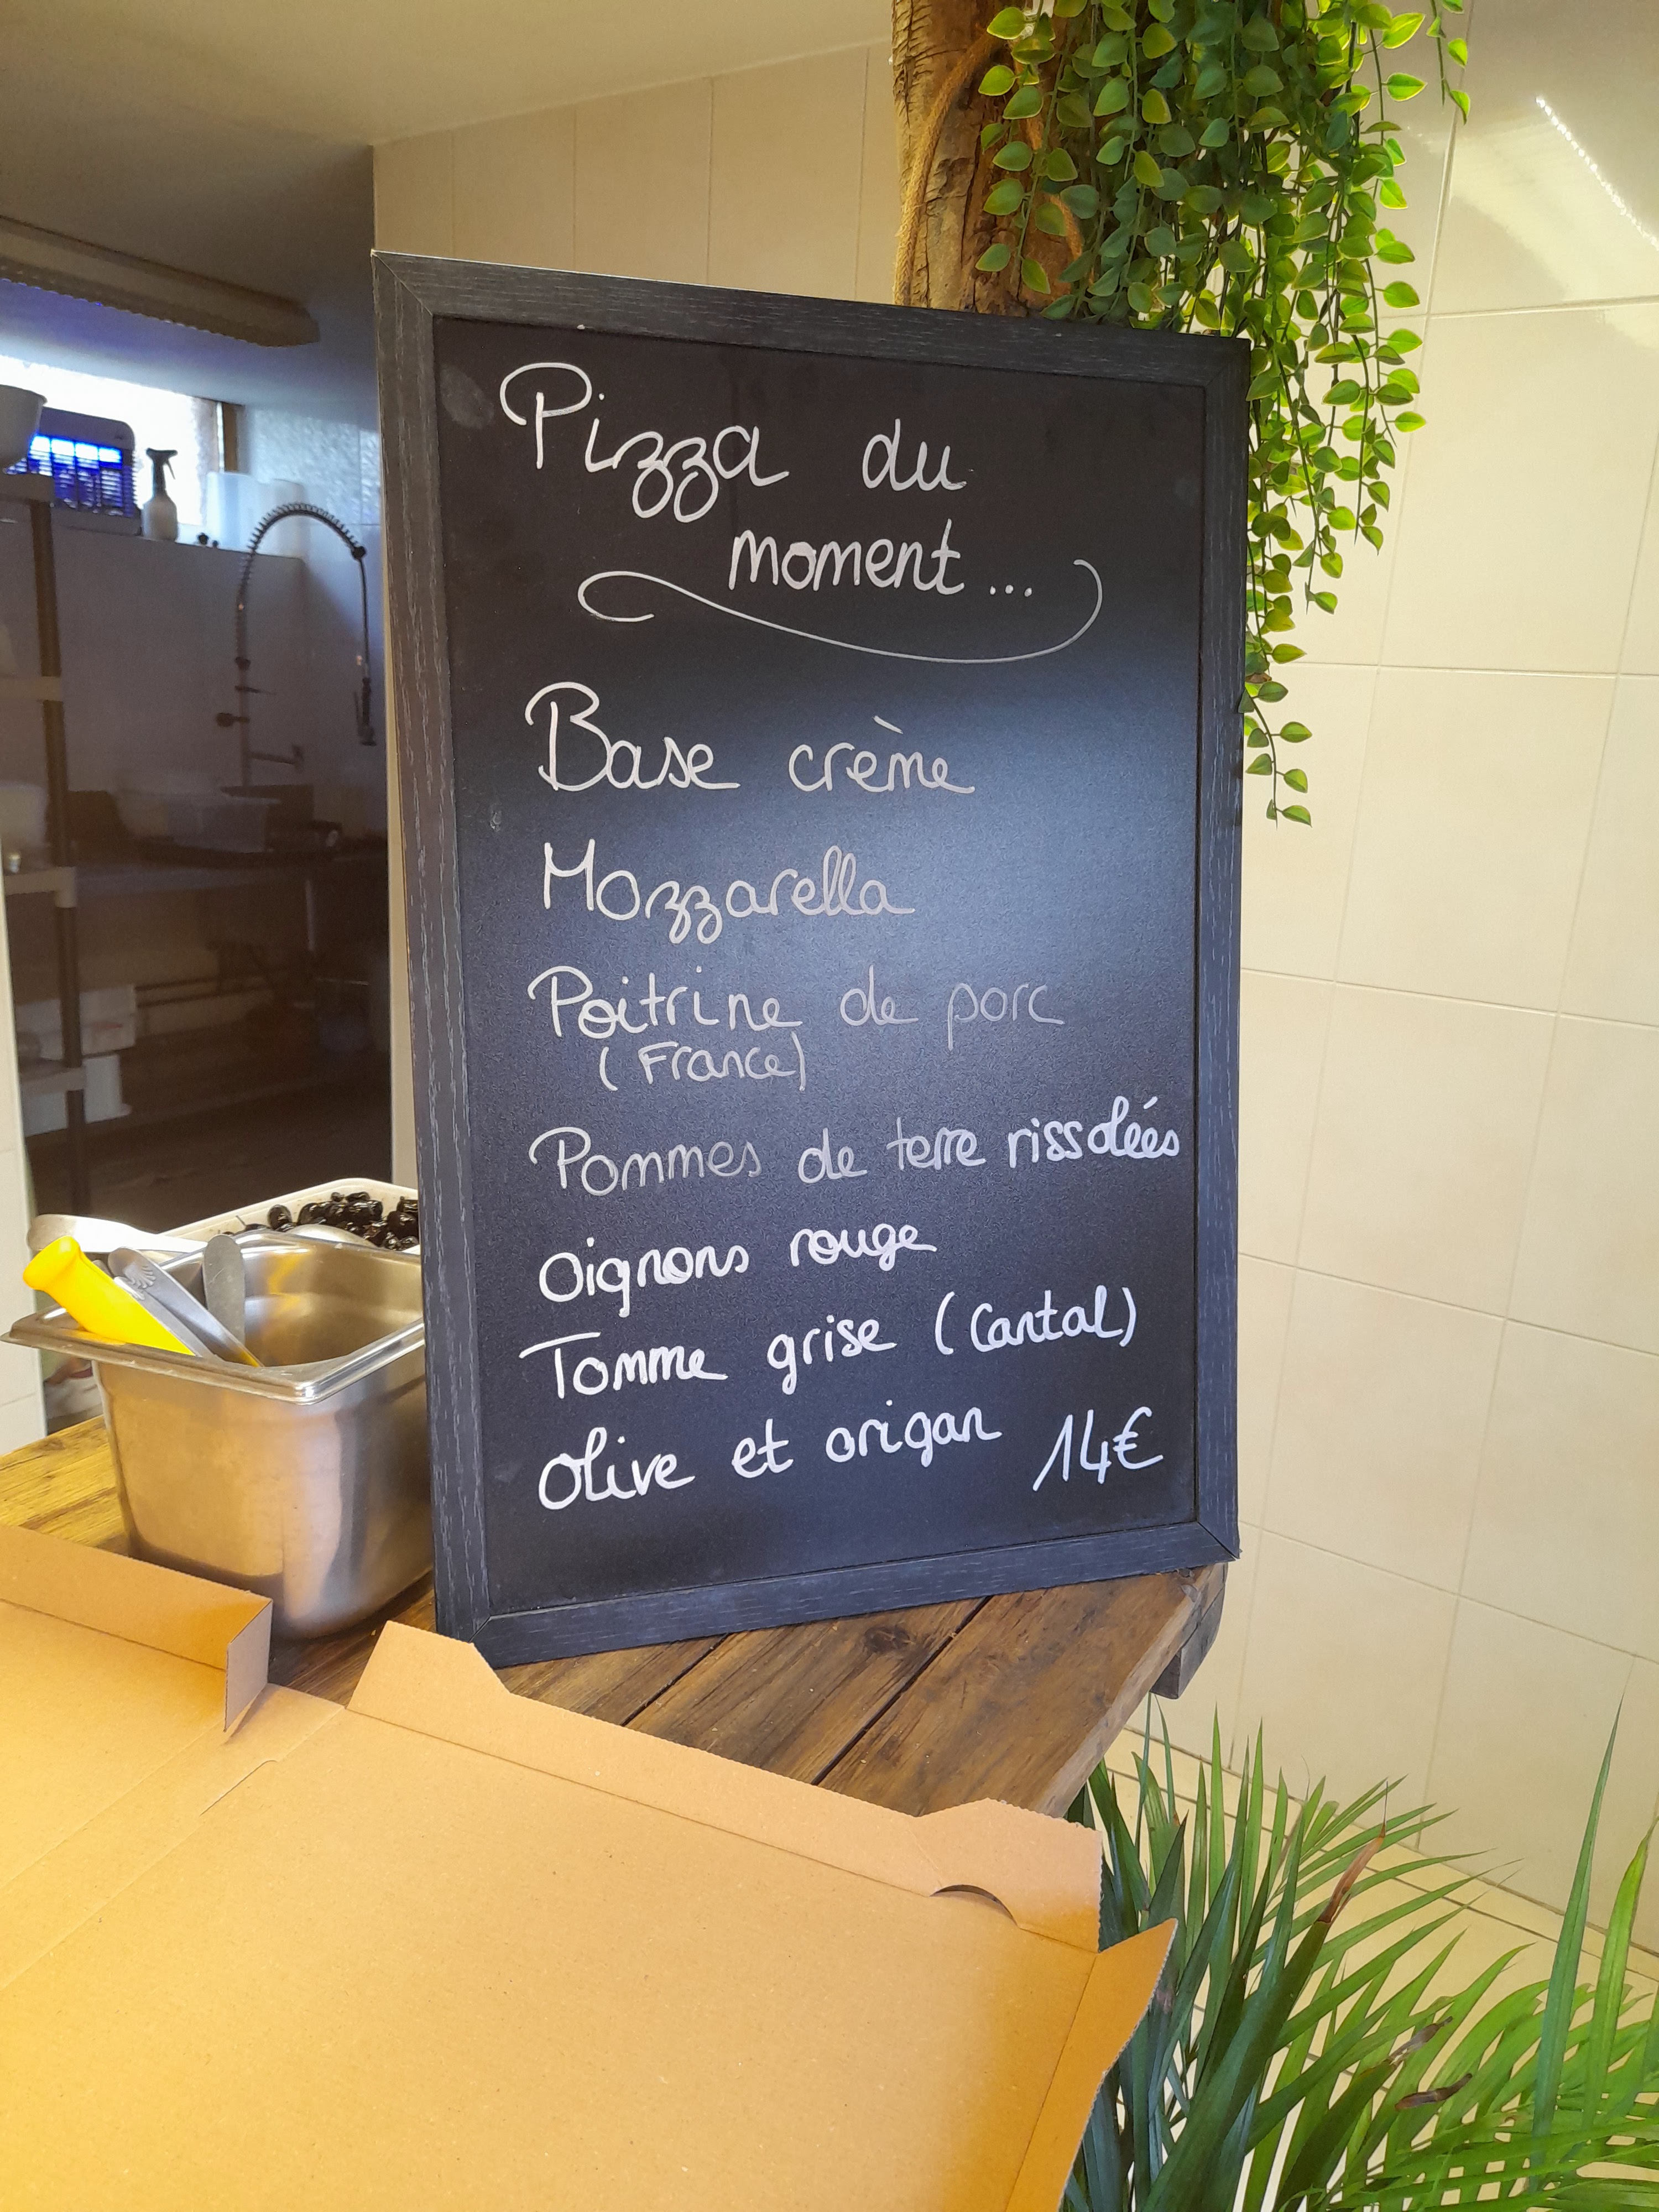 Pizza du
moment...
Base crème
Mozzarella
Poitrine de porc
(France)
Pommes de terre rissolées
Oignons rouge
Tomme grise (Cantal)
Olive et origan 14€